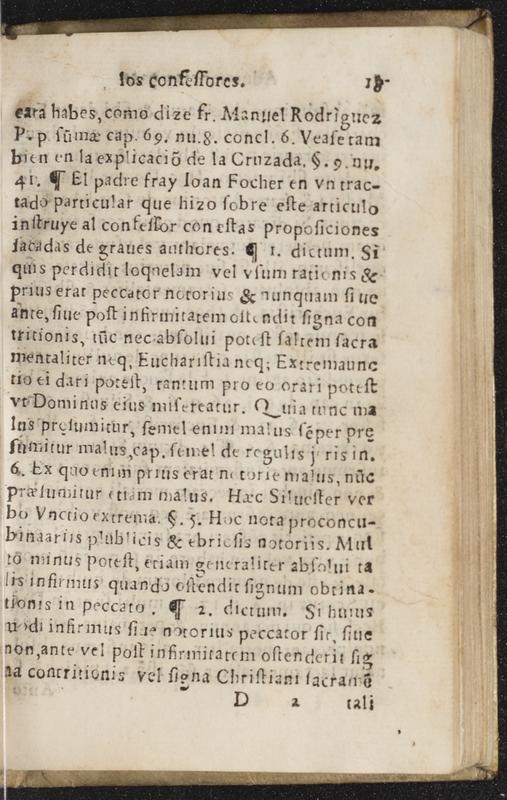 los confeſſores. 18
eara habes, como dize fr. Manuel Rodriguez
P. p. ſũmæ cap. 69. nu. 8. concl. 6. Veaſe tam
bien en la explicaciõ de la Cruzada. §. 9. nu.
41. ¶ El padre fray Ioan Focher en vn trac-
tado particular que hizo ſobre eſte articulo
inſtruye al confeſſor con eſtas propoſiciones
ſacadas de graues authores. ¶ 1. dictum. Si
quis perdidit loquelam vel vſum rationis &
prius erat peccator notorius & nunquam ſiue
ante, ſiue poſt infirmitatem oſtendit ſigna con
tritionis, tũc nec abſolui poteſt ſaltem ſacra
mentaliter neq, Euchariſtia neq; Extremaunc
tio ei dari poteſt, tantum pro eo orari poteſt
vt Dominus eius miſereatur. Quia tunc ma
lus pręſumitur, ſemel enim malus ſẽper prę
ſumitur malus, cap. ſemel de regulis juris in.
6. Ex quo enim prius erat notorie malus, nũc
præſumitur etiam malus. Hæc Silueſter ver
bo Vnctio extrema. §. 5. Hoc nota pro concu-
binaariis plublicis & ebrioſis notoriis. Mul
tò minus poteſt, etiam generaliter abſolui ta
lis infirmus quando oſtendit ſignum obtina-
tionis in peccato. ¶ 2. dictum. Si huius
modi infirmus ſiue notorius peccator ſit, ſiue
non, ante vel poſt infirmitatem oſtenderit ſig
na contritionis vel ſigna Chriſtiani ſacramẽ
D 2 tali